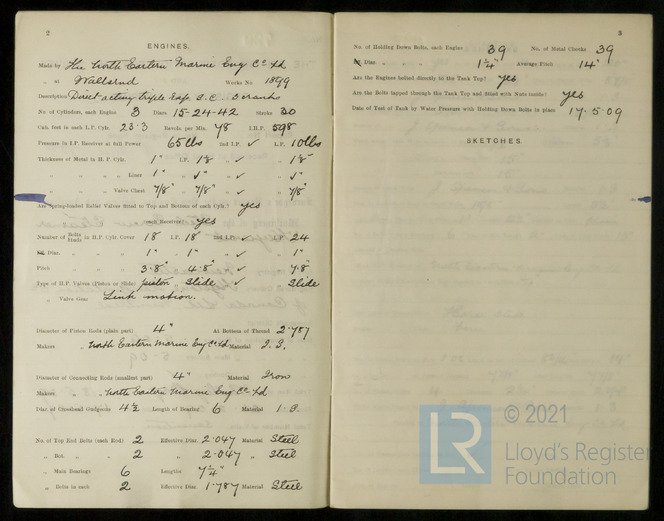 2
ENGINES.
Made by The North Eastern Marine Eng Co Ld
„ at Wallsend Works No 1899
Description Direct acting Triple Exp. S.C. 3 cranks
No. of Cylinders, each Engine 3 Diars. 15-24-42 Stroke 30
Cub. feet in each L.P. Cylr. 23.3 Revols. per Min. 78 I.H.P. 598
Pressure in I.P. Receiver at full Power 65 lbs 2nd I.P. ✓ L.P. 10 lbs
Thickness of Metal in H.P. Cylr. 1" I.P. 1⅛ „ ✓ „ 1⅛"
„ „ „ Liner 1" „ ✓" „ ✓ „ ✓"
„ „ Valve Chest 7/8" „ 7/8" „ ✓ „ 7/8"
Are Spring-loaded Relief Valves fitted to Top and Bottom of each Cylr.? yes
„ „ each Receiver? yes
Number of Bolts Studs in H.P. Cylr. Cover 18 I.P. 18 2nd I.P. ✓ L.P. 24
Diar. „ „ 1" „ 1" „ ✓ „ 1"
Pitch „ „ 3.8" „ 4.8" „ ✓ „ 4.8"
Type of H.P. Valves (Piston or Slide) piston „ Slide „ ✓ Slide
„ Valve Gear Link motion.
Diameter of Piston Rods (plain part) 4" At Bottom of Thread 2.787
Makers „ North Eastern Marine Eng Co Ld Material I.S.
Diameter of Connecting Rods (smallest part) 4" Material Iron
Makers „ North Eastern Marine Eng Co Ld
Diar. of Crosshead Gudgeons 4½ Length of Bearing 6 Material I.S
No. of Top End Bolts (each Rod) 2 Effective Diar. 2.047 Material Steel
„ Bot. „ „ 2 „ 2.047 „ Steel
„ Main Bearings 6 Lengths 7¼"
„ Bolts in each 2 Effective Diar. 1.787 Material Steel
3
No. of Holding Down Bolts, each Engine 39 No. of Metal Chocks 39
Diar. „ „ 1¼" Average Pitch 14"
Are the Engines bolted directly to the Tank Top? yes
Are the Bolts tapped through the Tank Top and fitted with Nuts inside? yes
Date of Test of Tank by Water Pressure with Holding Down Bolts in place 17.5.09
SKETCHES.
LR © 2021
Lloyd's Register
Foundation